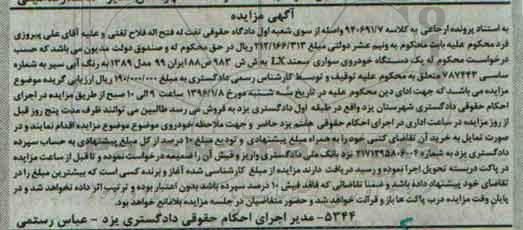 آگهی مزایده
به استناد پرونده ارجاعی به کلاسه ۹۴۰۶۹۱/۷ واصله از سوی شعبه اول دادگاه حقوقی تفت له فتح اله فلاح تفتی و علیه آقای علی پیروزی
فرد محکوم علیه بابت محکوم به ونیم عشر دولتی مبلغ ۲۱۲/۱۶۶/۳۱۳ ریال در حق محکوم له و صندوق دولت مدیون می باشد که حسب
درخواست محکوم له یک دستگاه خودروی سواری سمند LX به ش ش ۹۸۳ ص۸۸ ایران ۹۹ مدل ۱۳۸۹ به رنگ آبی سیر به شماره
ساسی ۷۸۷۴۴۳ متعلق به محکوم علیه توقیف و توسط کارشناس رسمی دادگستری به مبلغ ۱۹۰/۰۰۰/۰۰۰ ریال ارزیابی گریده موضوع
مزایده می باشد که جهت ادای دین محکوم علیه در تاریخ سه شنبه مورخ ۱۳۹۶/۱/۸ ساعت ۹ الی ۱۰ صبح از طریق مزایده در اجرای
احکام حقوقی دادگستری شهرستان یزد واقع در طبقه اول دادگستری یزد به فروش می رسد طالبین می توانند ظرف مدت پنج روز قبل
از روز مزایده در ساعات اداری در اجرای احکام حقوقی هفتم یزد حاضر و جهت ملاحظه خودروی موضوع موضوع مزایده اقدام نمایند و در
صورت تمایل به خرید آن تقاضای کتبی خود را به همراه مبلغ پیشنهادی و تودیع مبلغ ۱۰ درصد از کل مبلغ پیشنهادی به حساب سپرده
دادگستری یزد به شماره ۲۱۷۱۲۹۵۸۰۶۰۰۴ نزد بانک ملی دادگستری واریز و فیش آن را ضمیمه درخواست نموده و تا قبل از ساعت مزایده
در پاکت دربسته تحویل اجرا نموده و رسید دریافت دارند مزایده از مبلغ کارشناسی شده آغاز و برنده کسی است که بیشترین مبلغ را در
تقاضای خود پیشنهاد داده باشد و ضمنا تقاضائی که فاقد فیش ۱۰ درصد سپرده باشد بدون اعتبار بوده و ترتیب اثر داده نخواهد شد و در
پایان وقت مزایده درب پاکت ها باز و قرائت خواهد شد و حضور متقاضیان در جلسه مزایده بلامانع خواهد بود.
۵۳۴۴- مدیر اجرای احکام حقوقی دادگستری یزد - عباس رستمی